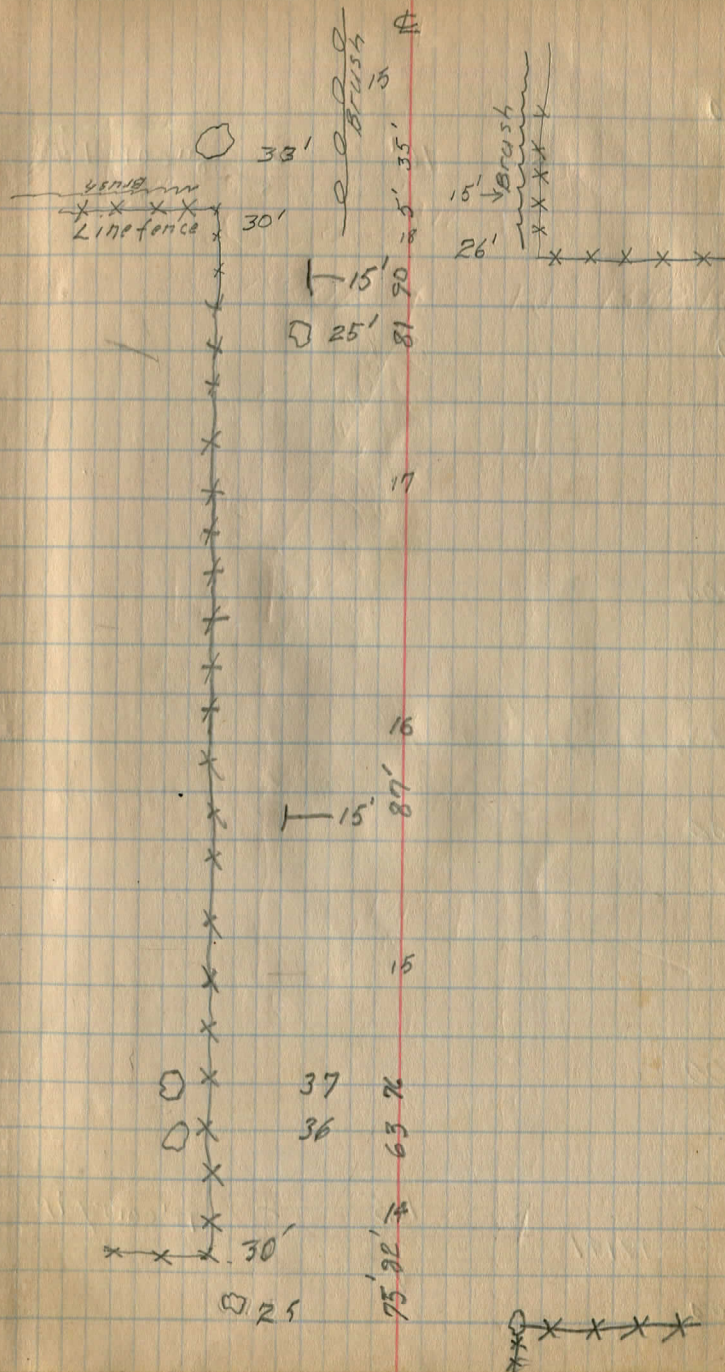 ℄
Brush
15
33'
35'
Brush
15'
Brush
Line fence
30'
5'
18
26'
15'
90
25'
81
17
16
87'
15'
15
37
36
63
14
30'
92'
25
75'